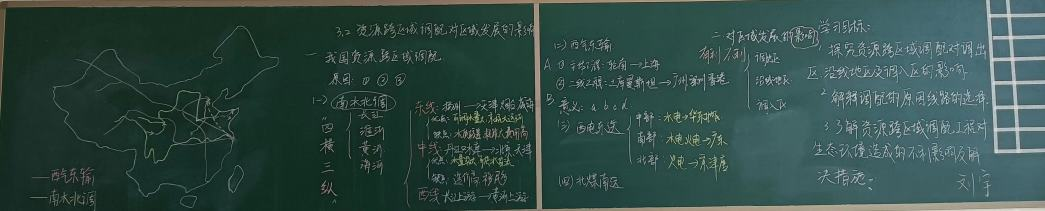 3.2 资源跨区域调配对区域发展的影响
一 我国资源跨区域调配
原因: ① ② ③
(一) 南水北调
"四横三纵"
长江
淮河
黄河
海河
东线: 扬州 → 天津
中线: 丹江口水库 → 北京 天津
西线: 长江上游 → 黄河上游
— 西气东输
— 南水北调
(二) 西气东输
A. ① 一线工程: 轮南 → 上海
② 二线工程: 土库曼斯坦 → 广州 深圳 香港
B. 意义: a b c d
(三) 西电东送
中部: 水电 → 华东地区
南部: 水电火电 → 广东
北部: 火电 → 京津唐
(四) 北煤南运
二 对区域发展的影响
有利 不利
调出区
沿线地区
调入区
学习目标:
1. 探究资源跨区域调配对调出
区、沿线地区及调入区的影响
2. 解释调配的原因线路的选择
3. 了解资源跨区域调配工程对
生态环境造成的不利影响及解
决措施。
刘宇